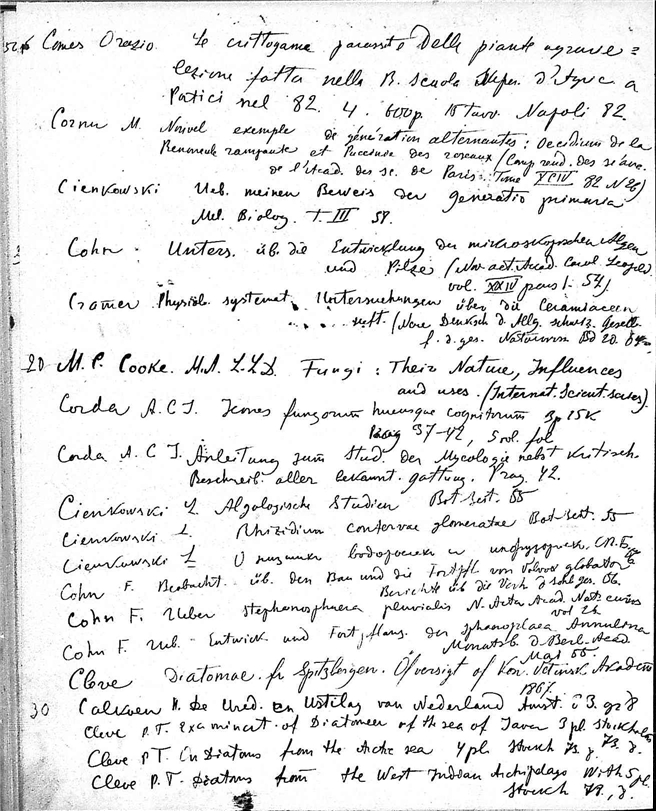 Comes Orazio. Le crittogame parassite delle piante agrarie =
lezione fatta nella R. Scuola Super. d'Agric a
Portici nel 82. 4. 600p. 15 tavv. Napoli 82.
Cornu M. Nouvel exemple de génération alternantes: Oecidium de la
Renoncule rampante et Puccinie des roseaux (Comp. rend. des
de l'Acad. des sc. de Paris. Tome XCIV 82 N 26)
Cienkowski Ueb. meinen Beweis der generatio primaria
Mel. Biolog. T. III 58.
Cohn. Unters. üb. die Entwicklung der mikroskopischen Algen
und Pilze (Nov. act. Acad. Carol. Leopold.
vol. XXIV pars I. 54)
Cramer Physiol. systemat. Untersuchungen über die Ceramiaceen
Heft. (Neue Denksch d. Allg. schweiz. Gesell.
f. d. ges. Naturwiss Bd 20.
20 M. C. Cooke. M.A. L.L.D. Fungi: Their Nature, Influences
and uses. (Internat. Scient. series).
Corda A.C.I. Icones fungorum hucusque cognitorum
Prag 37-42, 5 vol. fol
Corda A. C. I. Anleitung zum Stud. der Mycologie nebst Kritisch.
Beschreib. aller bekannt. gattung. Prag. 42.
Cienkowski L. Algologische Studien Bot. Zeit. 55
Cienkowski L. Rhizidium confervae glomeratae Bot. Zeit. 55
Cienkowski L О низших водорослях и инфузориях. СП.Б.
Cohn F. Beobacht. üb. den Bau und die Fortpfl. von Volvox globator
Berichte üb die Verh d schl ges. 56.
Cohn F. Ueber Stephanosphaera pluvialis N. Acta Acad. Nat. curios
vol 26
Cohn F. Ueb. Entwick und Fortpflanz. der Sphaeroplaea Annulina
Monatsb. d. Berl. Acad.
Mai 55.
Cleve Diatomae. fr Spitzbergen. Öfversigt of Kon. Vetensk Akadem
1867.
30 Calkoen H. De Ured. en Ustilag van Nederland Amst. 83. gr 8
Cleve P.T. Examinat. of Diatomeer of the sea of Java 3 pl. Stockholm
73. 8.
Cleve P T. On Diatoms from the Actic sea 4 pl. Stockh 73. 8.
Cleve P. T. Diatoms from the West Indian Archipelago With 5 pl.
Stockh 78., 8.